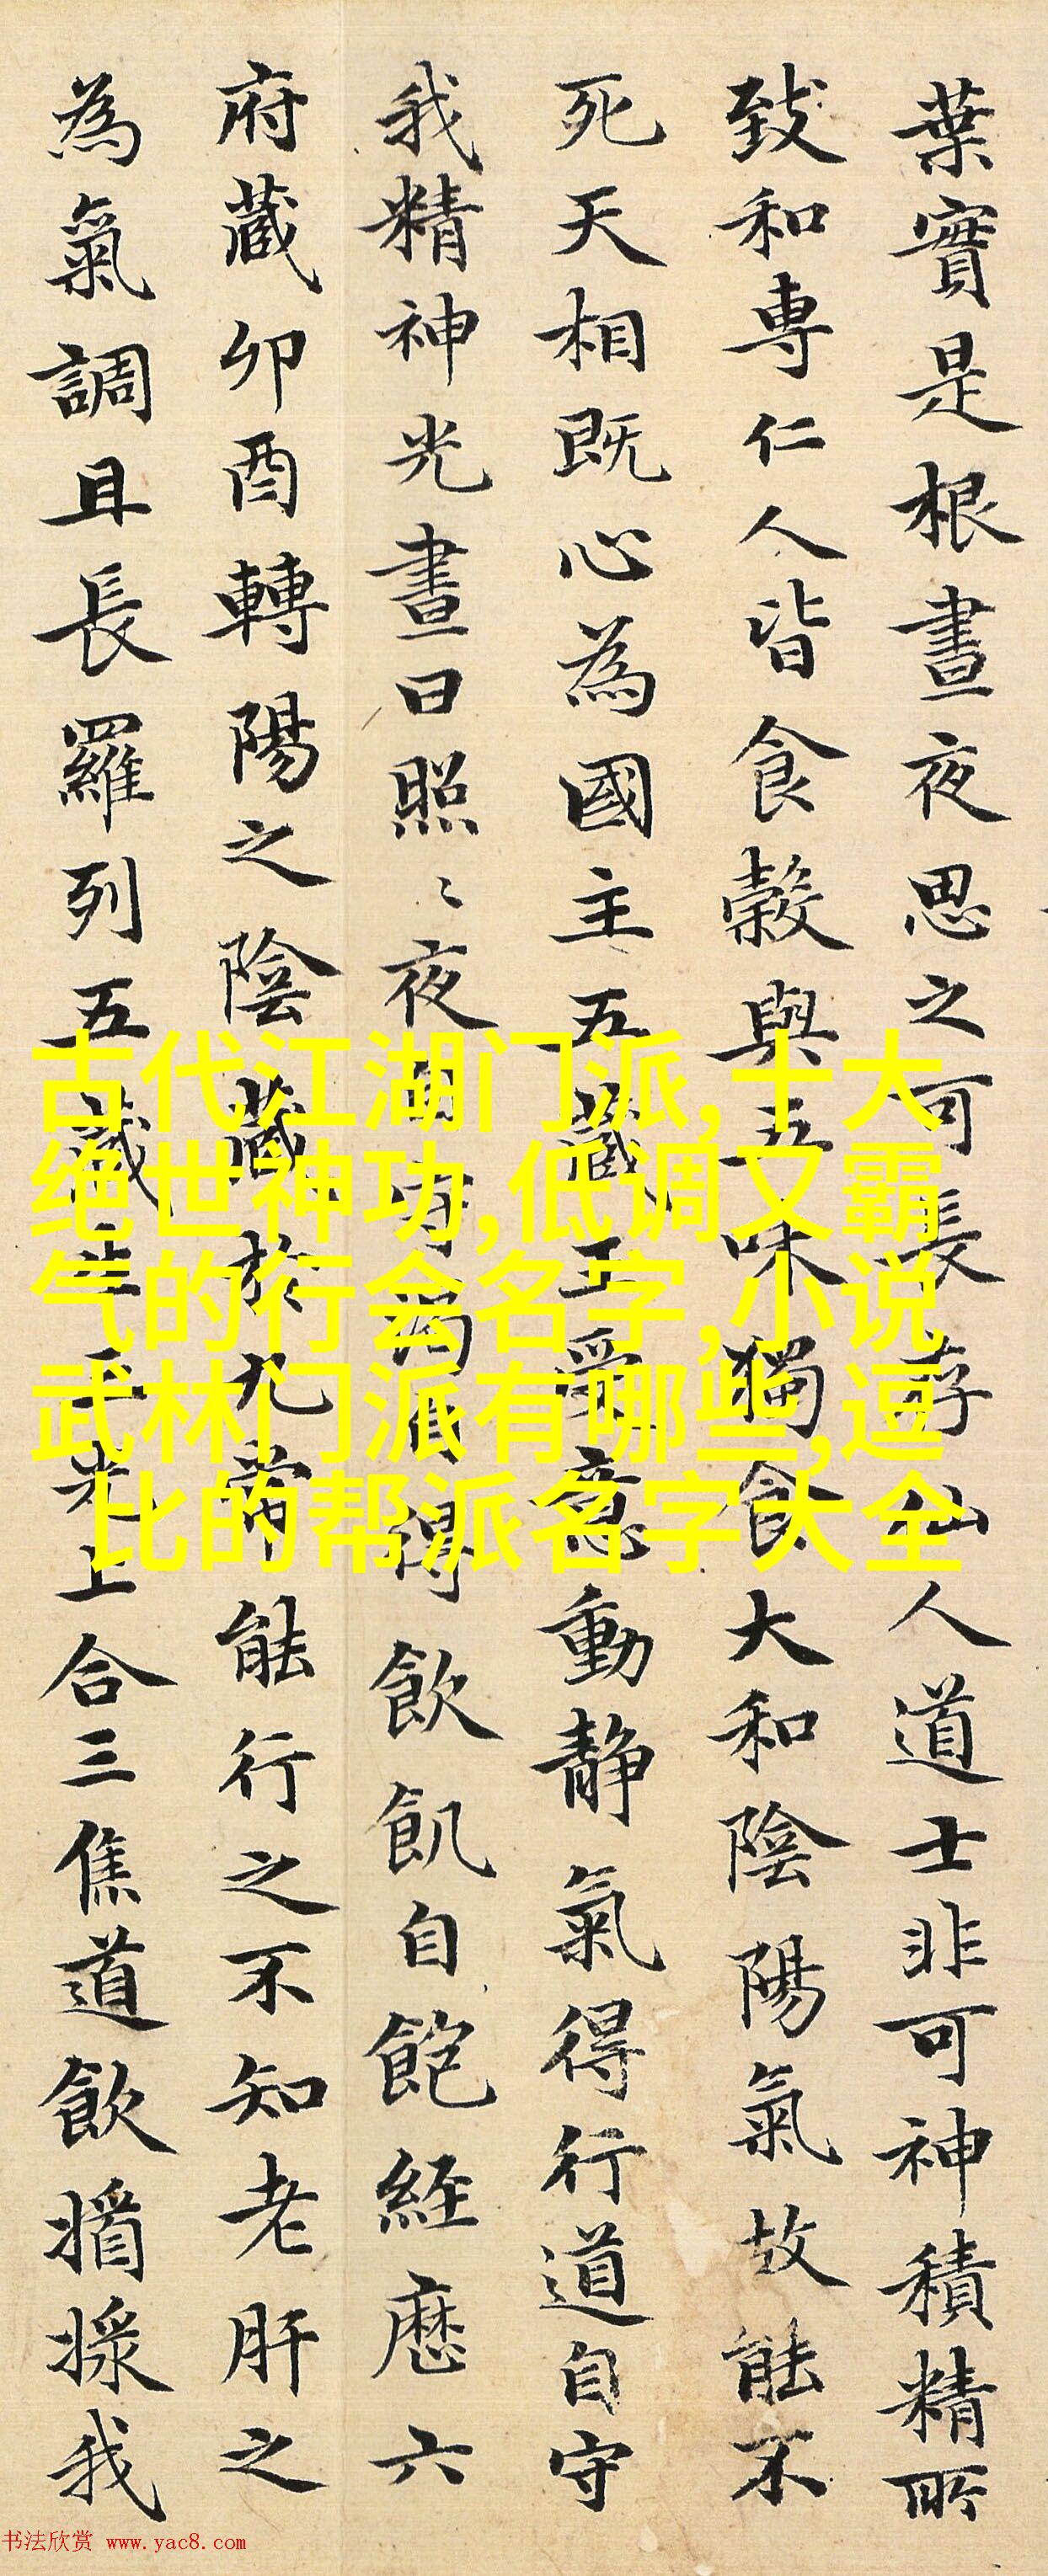 葉實是根晝夜思之可長存仙人道士非可神積精所
致和專仁人皆食穀與五味獨食大和陰陽氣故能不
死天相既心為國主五藏王受意動靜氣得行道自守
我精神光晝日照〻夜自守渴自得飲飢自飽經歷六
府藏卯酉轉陽之陰藏於九常能行之不知老肝之
為氣調且長羅列五藏生三光上合三焦道飲漿我
古代江湖门派,十大
绝世神功,低调又霸
气的行会名字,小说
武林门派有哪些,逗
比的帮派名字大全
书法欣赏 www.yac8.com